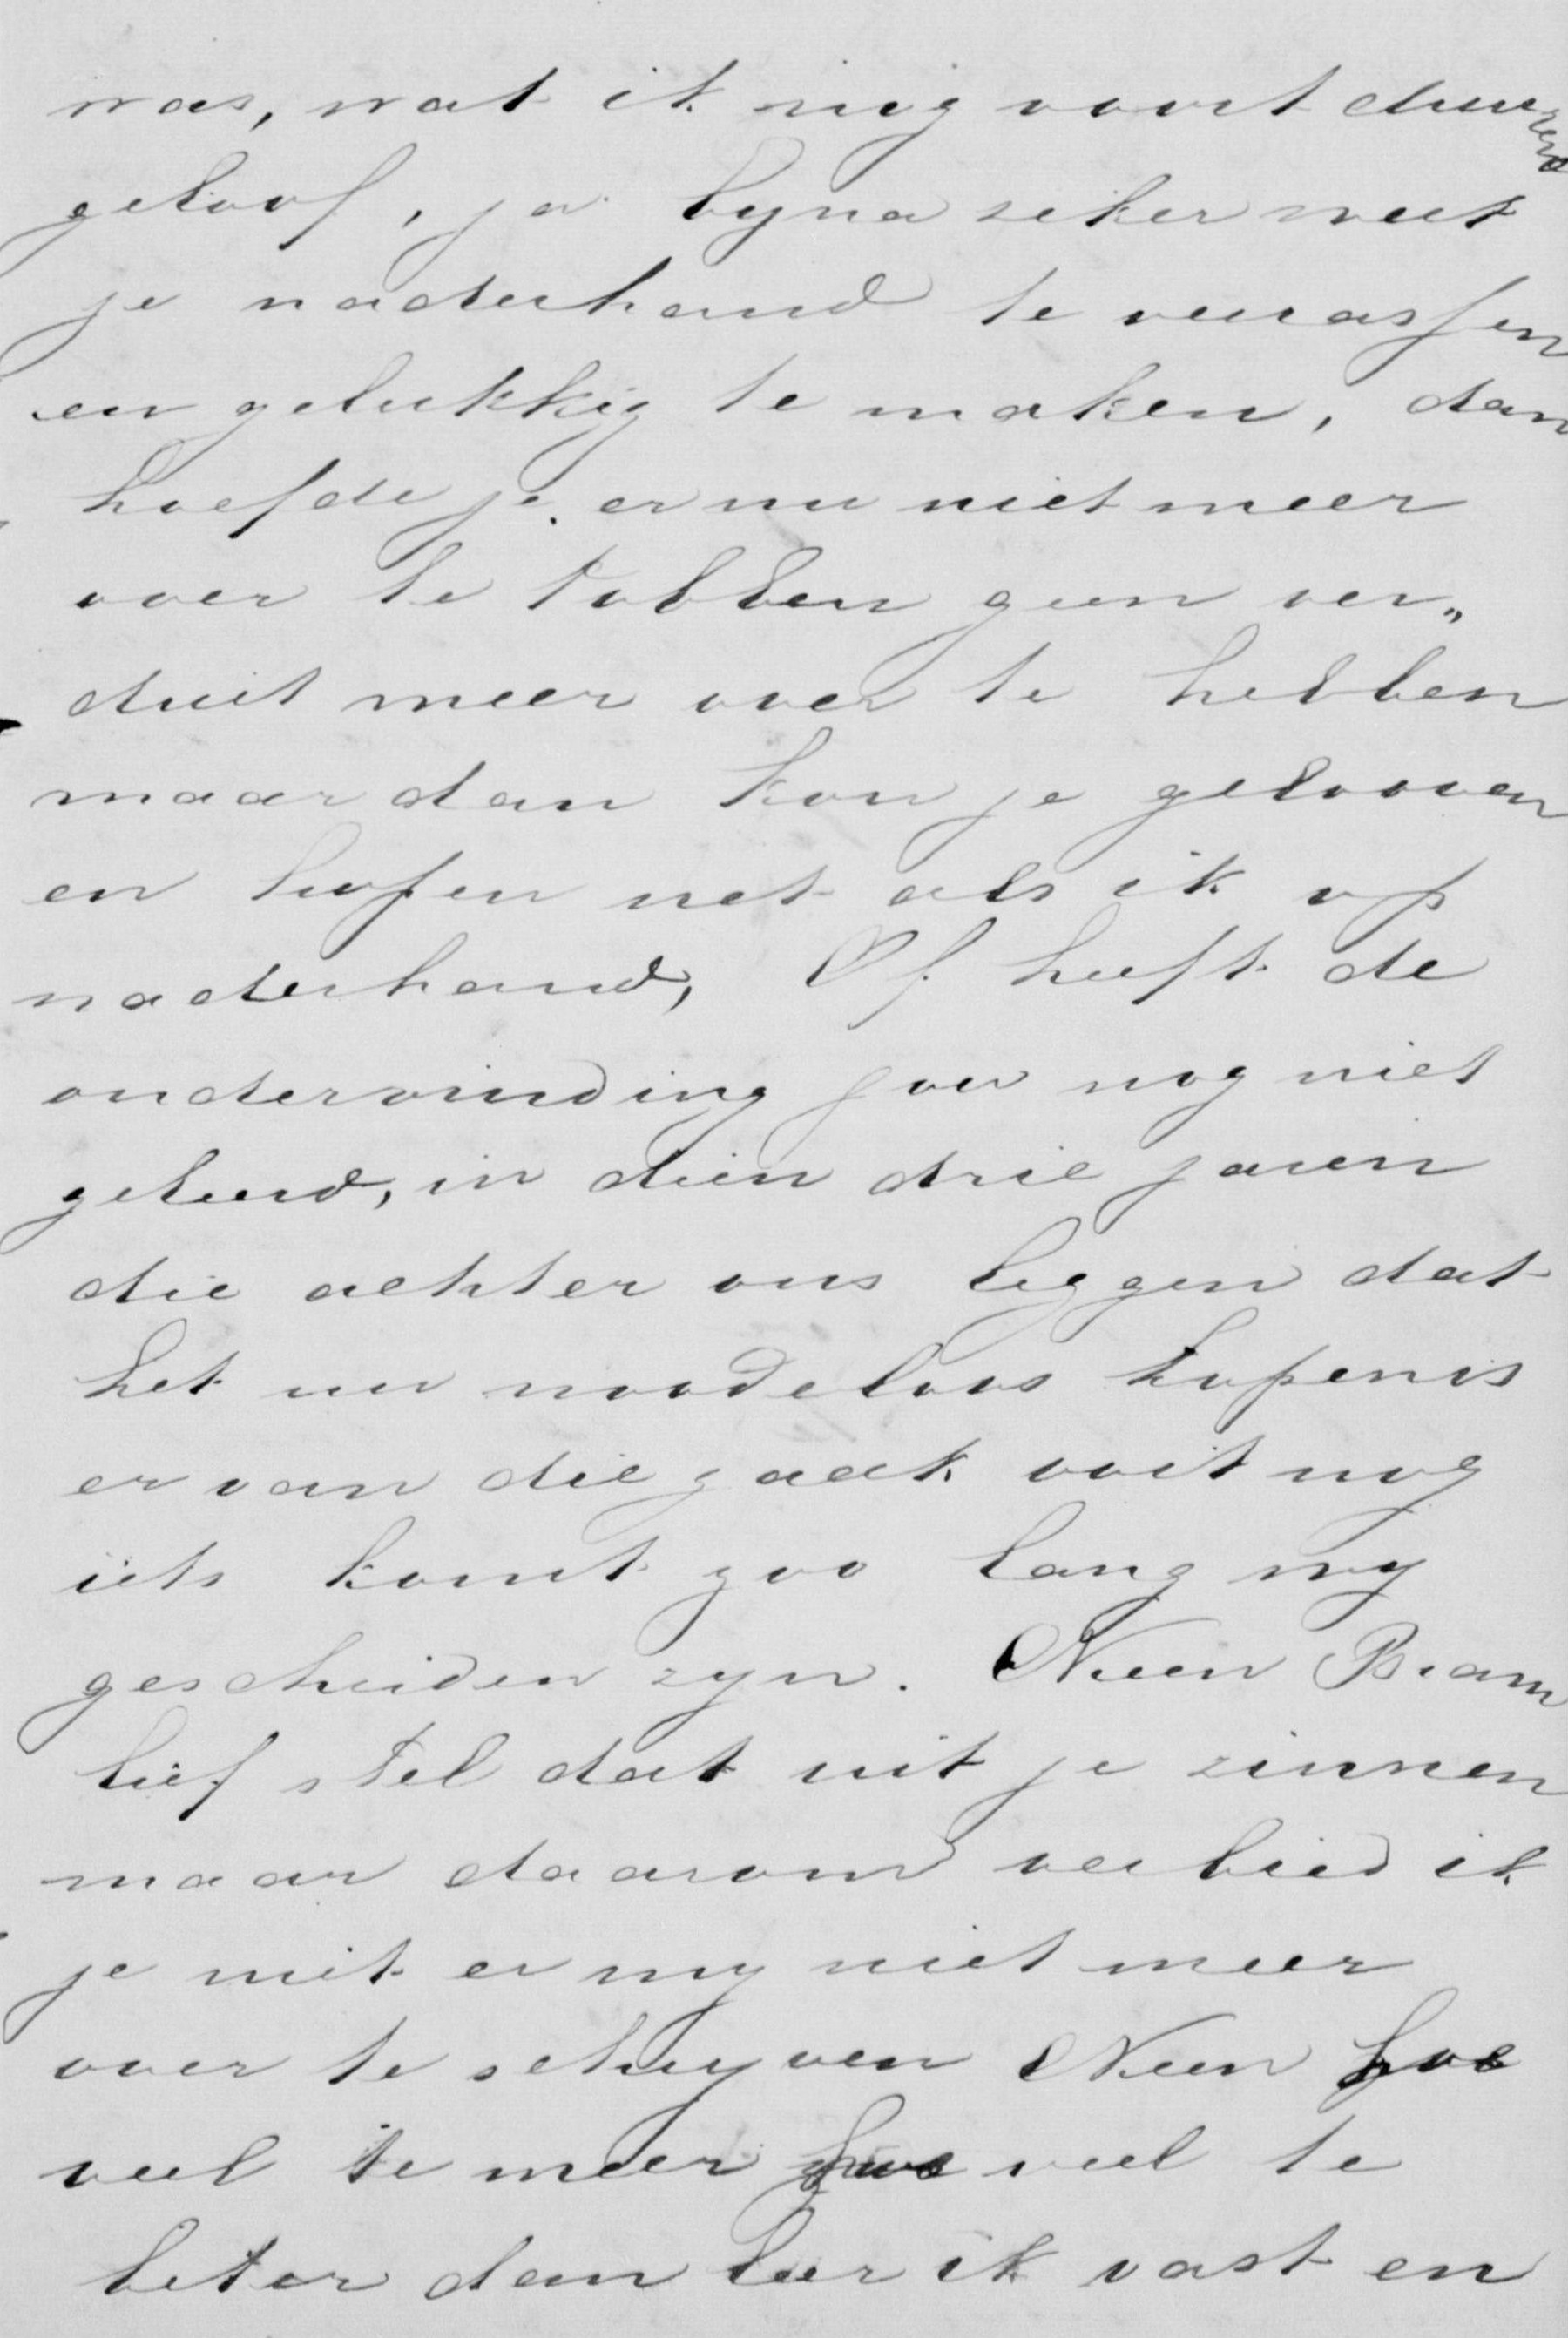 was, wat ik nig voort durend
geloof, ja byna zeker weet
je naderhand te verrassen
en gelukkig te maken, dan
hoefde je er nu niet meer
over te tobben geen ver„
driet meer over te hebben
maar dan kon je gelooven
en hopen net als ik op
naderhand, Of heeft de
ondervinding jou nog niet
geleerd, in dien drie jaren
die achter ons liggen dat
het nu noodeloos hopen is
er van die zaak ooit nog
iets komt zoo lang wy
gescheiden zyn. Neen Bram
lief stel dat uit je zinnen
maar daarom verbied ik
je niet er my niet meer
over te schryven Neen hoe
veel te meer hoe veel te
beter dan leer ik vast en